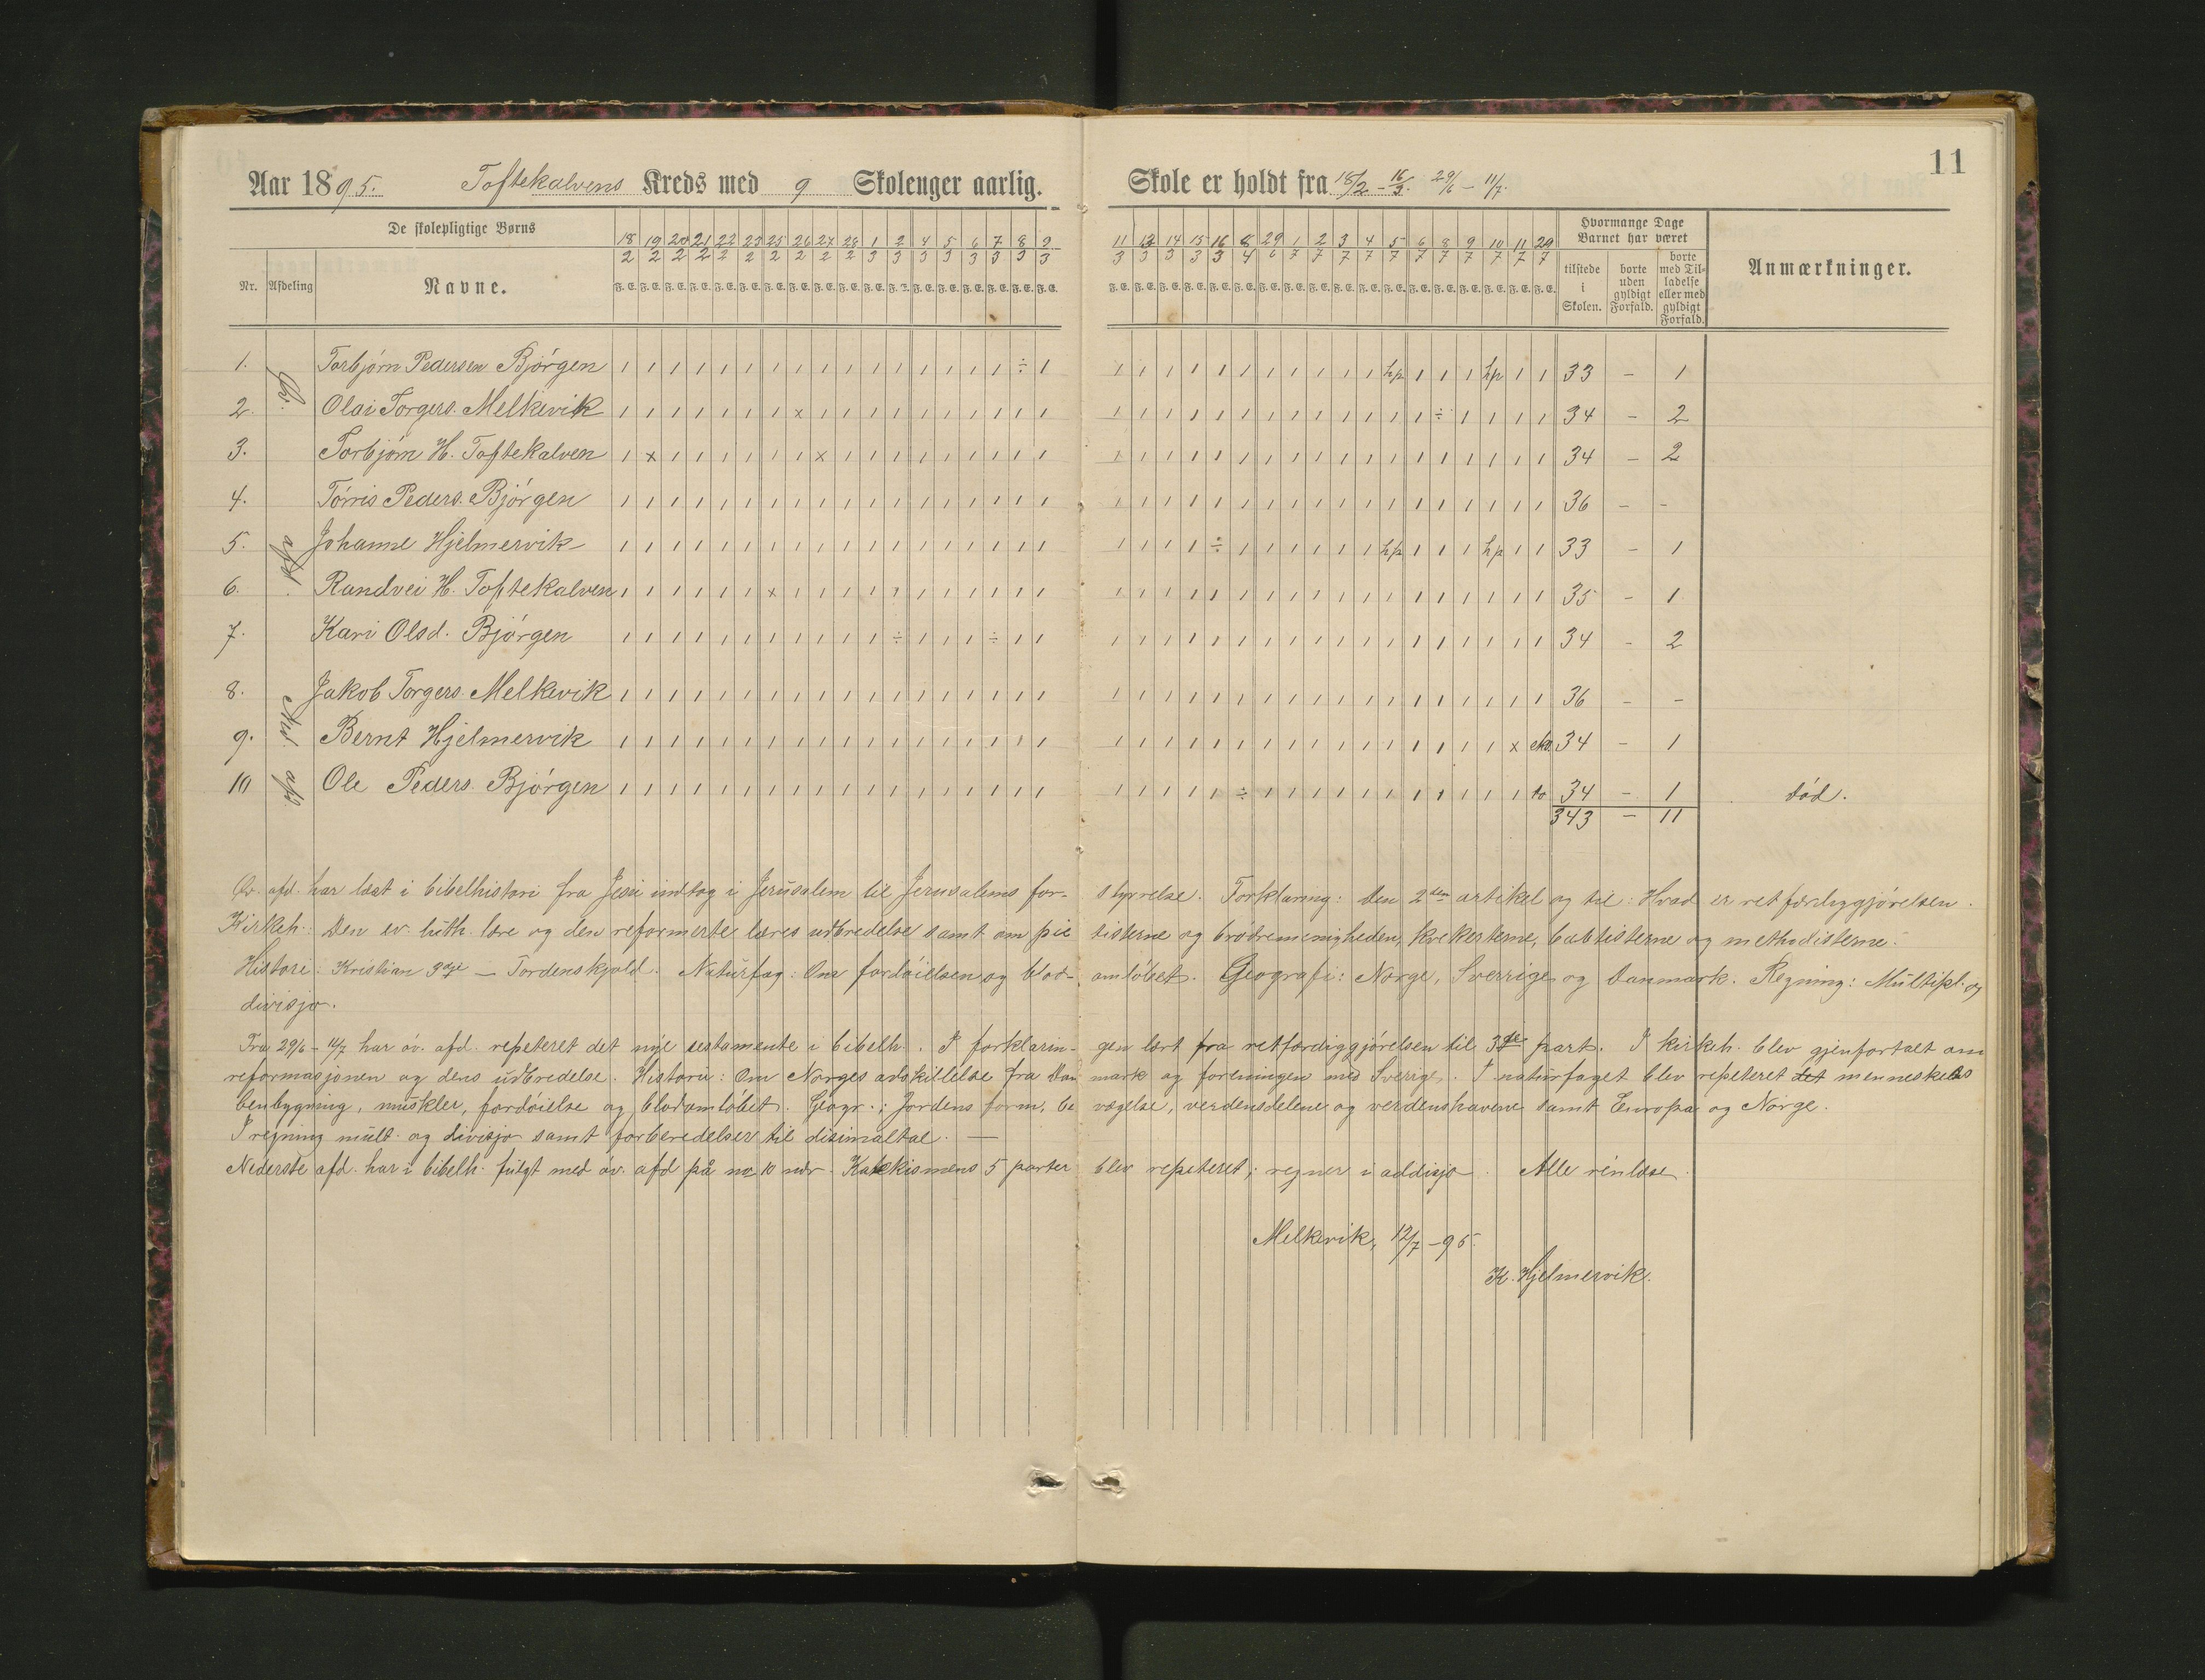 11
Aar 1895. Toftekalvens Kreds med 9 Skoleuger aarlig. Skole er holdt fra 18/2 - 16/3. 29/6 - 11/7.
De skolepligtige Børns
Hvormange Dage Barnet har været
Nr. Afdeling Navne.
18/2 19/2 20/2 21/2 22/2 23/2 25/2 26/2 27/2 28/2 1/3 2/3 4/3 5/3 6/3 7/3 8/3 9/3 11/3 13/3 14/3 15/3 16/3 8/4 29/6 1/7 2/7 3/7 4/7 5/7 6/7 8/7 9/7 10/7 11/7 29/7
F. E. F. E. F. E. F. E. F. E. F. E. F. E. F. E. F. E. F. E. F. E. F. E. F. E. F. E. F. E. F. E. F. E. F. E. F. E. F. E. F. E. F. E. F. E. F. E. F. E. F. E. F. E. F. E. F. E. F. E. F. E. F. E. F. E. F. E. F. E. F. E.
tilstede i Skolen. borte uden gyldigt Forfald. borte med Tilladelse eller med gyldigt Forfald.
Anmærkninger.
Öv. afd.
1. Torbjørn Pedersen Bjørgen 1 1 1 1 1 1 1 1 1 1 1 1 1 1 1 1 ÷ 1 1 1 1 1 1 1 1 1 1 1 1 hp 1 1 1 hp 1 1 33 - 1
2. Olai Torgers. Melkevik 1 1 1 1 1 1 1 x 1 1 1 1 1 1 1 1 1 1 1 1 1 1 1 1 1 1 1 1 1 1 1 ÷ 1 1 1 1 34 - 2
3. Torbjørn H. Toftekalven 1 x 1 1 1 1 1 1 x 1 1 1 1 1 1 1 1 1 1 1 1 1 1 1 1 1 1 1 1 1 1 1 1 1 1 1 34 - 2
4. Tórris Peders. Bjórgen 1 1 1 1 1 1 1 1 1 1 1 1 1 1 1 1 1 1 1 1 1 1 1 1 1 1 1 1 1 1 1 1 1 1 1 1 36 - -
5. Johanne Hjelmervik 1 1 1 1 1 1 1 1 1 1 1 1 1 1 1 1 1 1 1 1 1 1 ÷ 1 1 1 1 1 1 hp 1 1 1 hp 1 1 33 - 1
6. Randvei H. Toftekalven 1 1 1 1 1 1 x 1 1 1 1 1 1 1 1 1 1 1 1 1 1 1 1 1 1 1 1 1 1 1 1 1 1 1 1 1 35 - 1
7. Kari Olsd. Bjórgen 1 1 1 1 1 1 1 1 1 1 1 ÷ 1 1 1 ÷ 1 1 1 1 1 1 1 1 1 1 1 1 1 1 1 1 1 1 1 1 34 - 2
Ned afd.
8. Jakob Torgers. Melkevik 1 1 1 1 1 1 1 1 1 1 1 1 1 1 1 1 1 1 1 1 1 1 1 1 1 1 1 1 1 1 1 1 1 1 1 1 36 - -
9. Bernt Hjelmervik 1 1 1 1 1 1 1 1 1 1 1 1 1 1 1 1 1 1 1 1 1 1 1 1 1 1 1 1 1 1 1 1 1 1 x 34 - 1
10 Ole Peders. Bjórgen 1 1 1 1 1 1 1 1 1 1 1 1 1 1 1 1 1 1 1 1 1 1 1 ÷ 1 1 1 1 1 1 1 1 1 1 1 34 - 1 död.
343 - 11
Öv. afd. har læst i bibelhistori fra Jesu indtog i Jerusalem til Jerusalems forstyrrelse. Forklaring: Den 2den artikel og til: Hvad er retfærdiggjórelsen.
Kirkeh.: Den ev. luth. lære og den reformerte læres udbredelse samt om pietisterne og bródremenigheden, kvekerterne, babtisterne og methodisterne.
Histori: Kristian 3dje - Tordenskjold. Naturfag: Om fordóielsen og blodomlóbet. Geografi: Norge, Sverrige og Danmark. Regning: Multipl. og
divisjo.
Fra 29/6 - 11/7 har óv. afd. repeteret det nye testamente i bibelh. I forklaringen lært fra retfærdiggjórelsen til 3die part. I kirkeh. blev gjenfortalt om
reformasjonen og dens udbredelse. Historie: Om Norges adskillelse fra Danmark og foreningen med Sverige. I naturfaget blev repeteret det menneskets
benbygning, muskler, fordóielse og blodomlóbet. Geogr.: Jordens form, bevægelse, verdensdelene og verdenshavene samt Europa og Norge.
I regning mult. og divisjo samt forberedelser til disimaltal. —
Nederste afd. har i bibelh. fulgt med óv. afd på no 10 nær. Katekismens 5 parter blev repeteret; regner i addisjo. Alle rénlæse.
Melkevik, 12/7 - 95.
K. Hjelmervik.